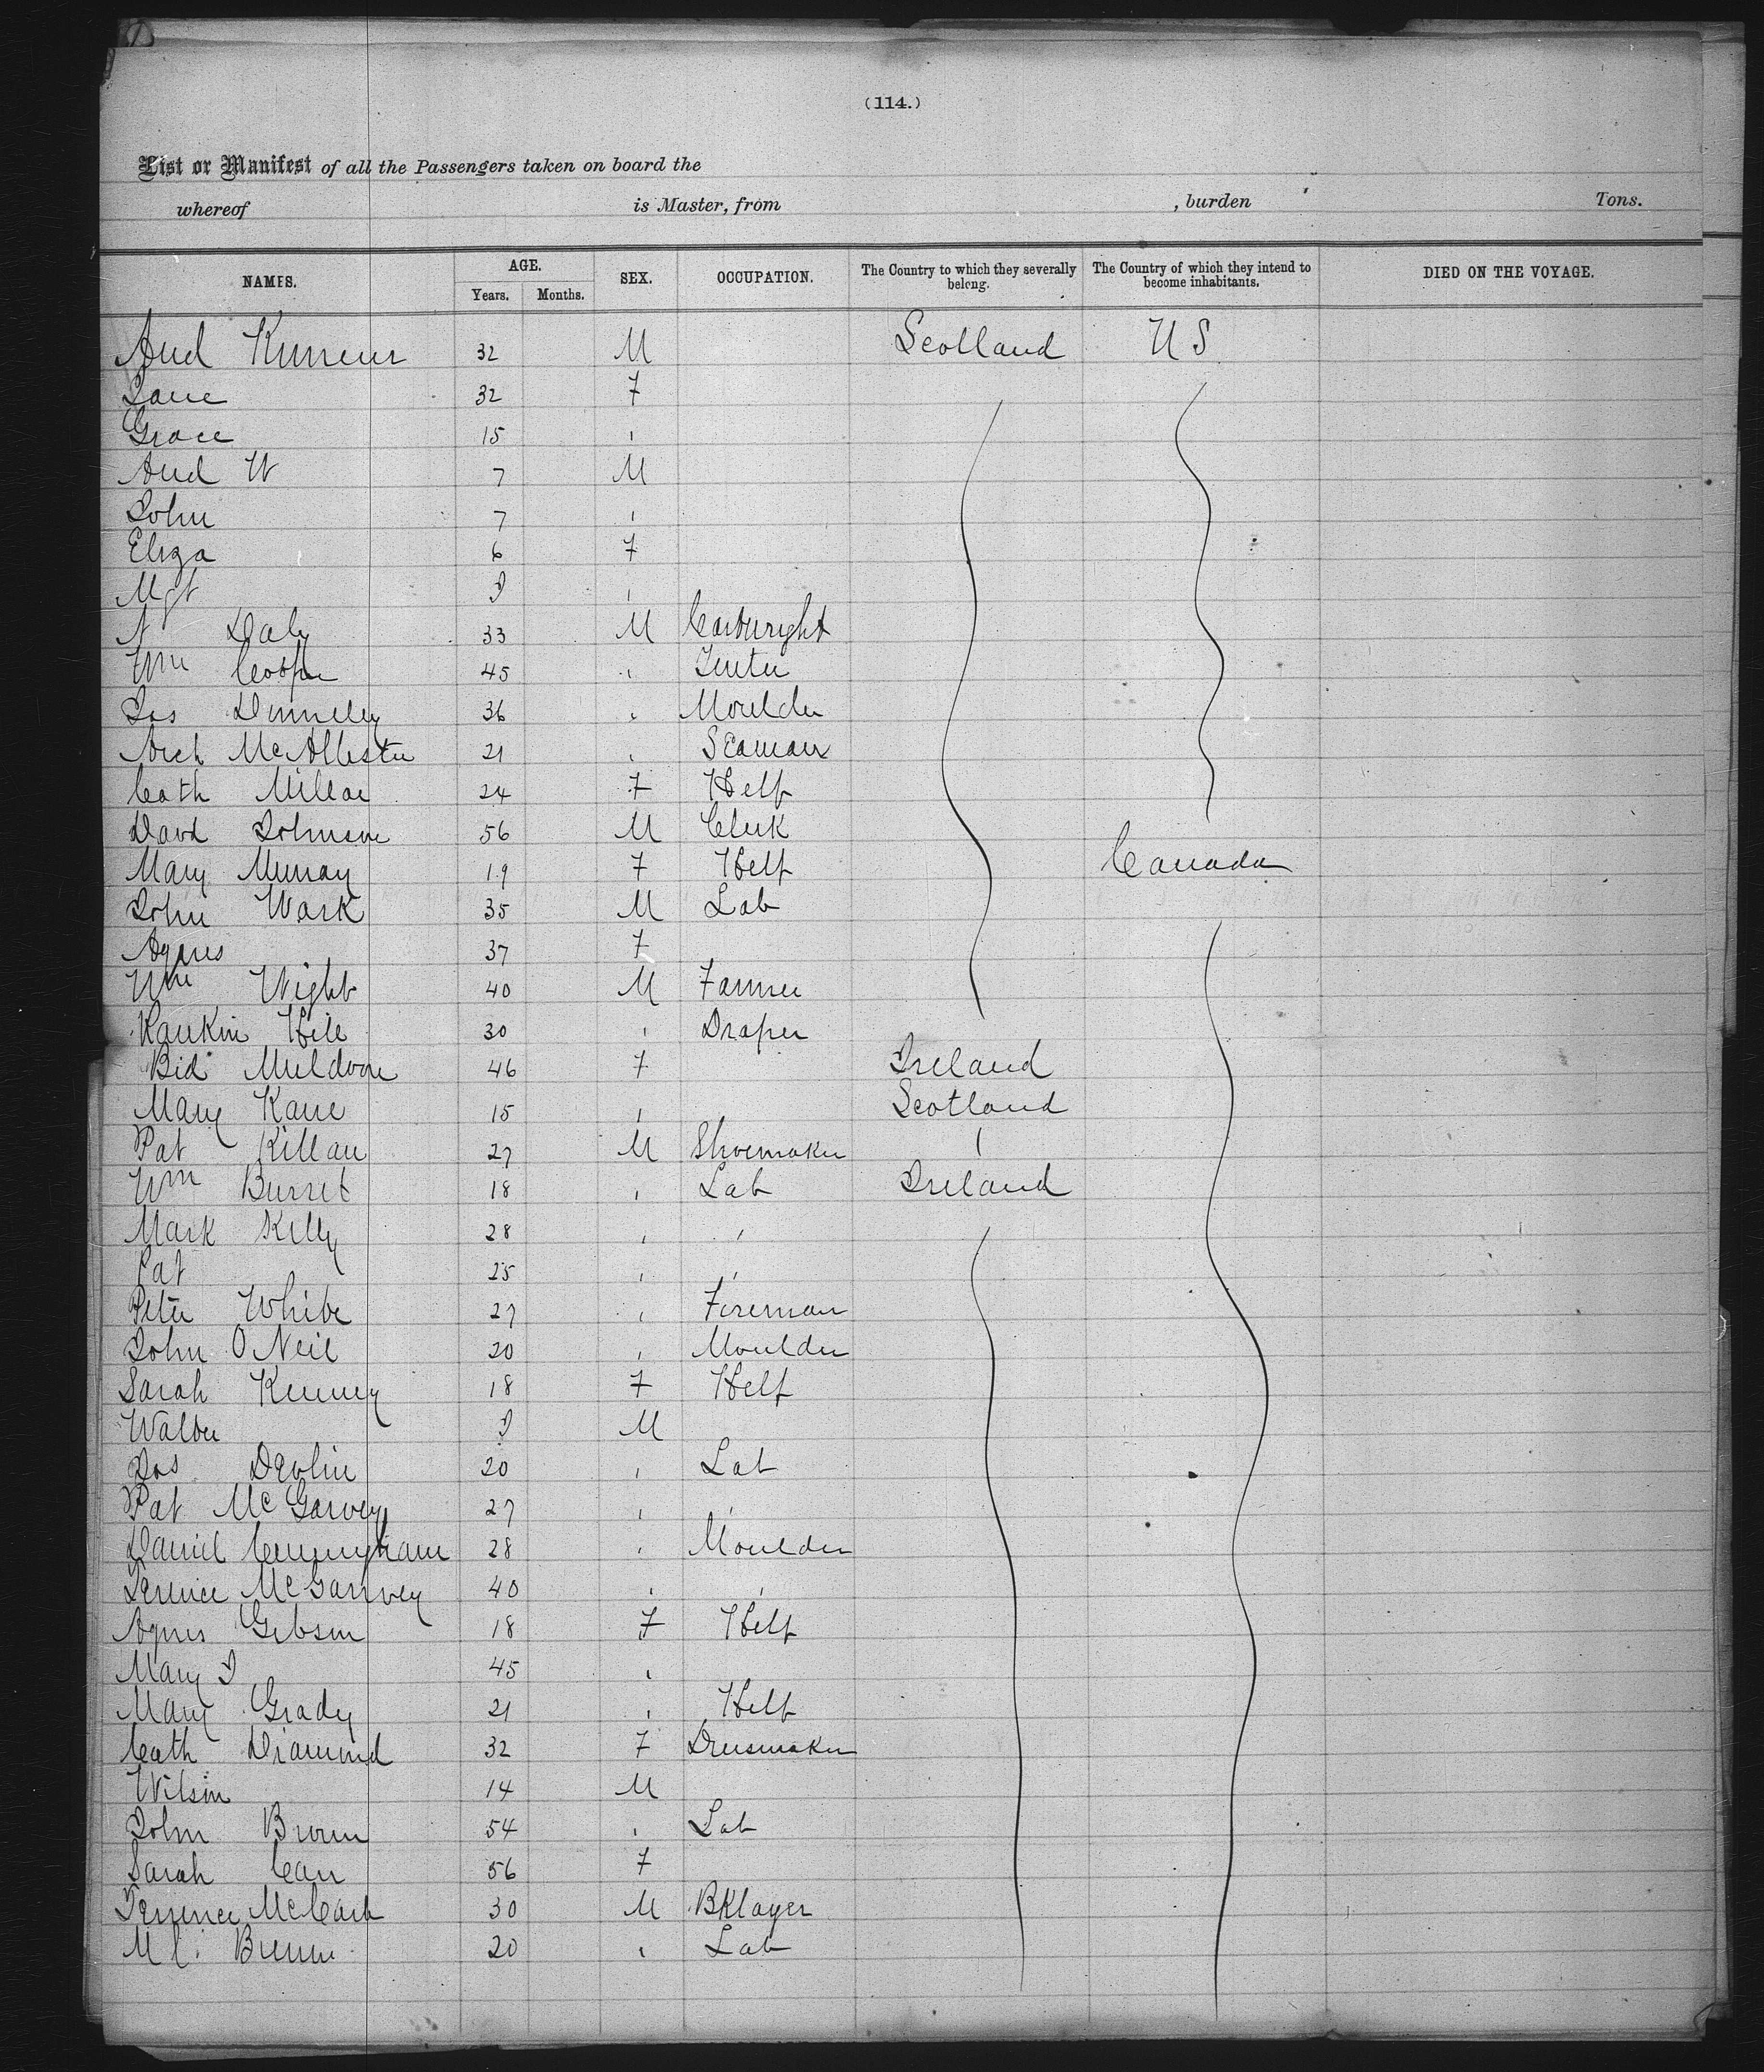 (114.)
List or Manifest of all the Passengers taken on board the
whereof is Master, from , burden Tons.
NAMES. AGE. SEX. OCCUPATION. The Country to which they severally belong. The Country of which they intend to become inhabitants. DIED ON THE VOYAGE.
Years. Months.
And 32 M Scotland US
Jane 32 F
Grace 15 "
And W 7 M
John 7 "
Eliza 6 F
Mgt "
Daly 33 M Cartwright
Wm Cooper 45 "
Jas Donnelly 36 " Moulder
Arch McAllister 21 " Seaman
Cath Millar 24 F Help
David Johnson 56 M Clerk
Mary Murray 19 F Help Canada
John Wark 35 M Lab
Agnes 37 F
Wm Wight 40 M Farmer
Rankin Hill 30 " Draper
Bid Muldoon 46 F Ireland
Mary Kane 15 " Scotland
Pat Killan 27 M Shoemaker "
Wm Burret 18 " Lab Ireland
Mark Kelly 28 " "
Pat 25 " "
Peter White 27 " Foreman
John O'Neil 20 " Moulder
Sarah Kenney 18 F Help
Walter M
Jas Devlin 20 " Lab
Pat McGarvey 27 " "
Daniel Cunningham 28 " Moulder
Terence McGarvey 40 " "
Agnes Gibson 18 F Help
Mary J 45 "
Mary Grady 21 " Help
Cath Diamond 32 F Dressmaker
Wilson 14 M
John Brown 54 " Lab
Sarah Carr 56 F
Terrence McCark 30 M BKlayer
20 " Lab